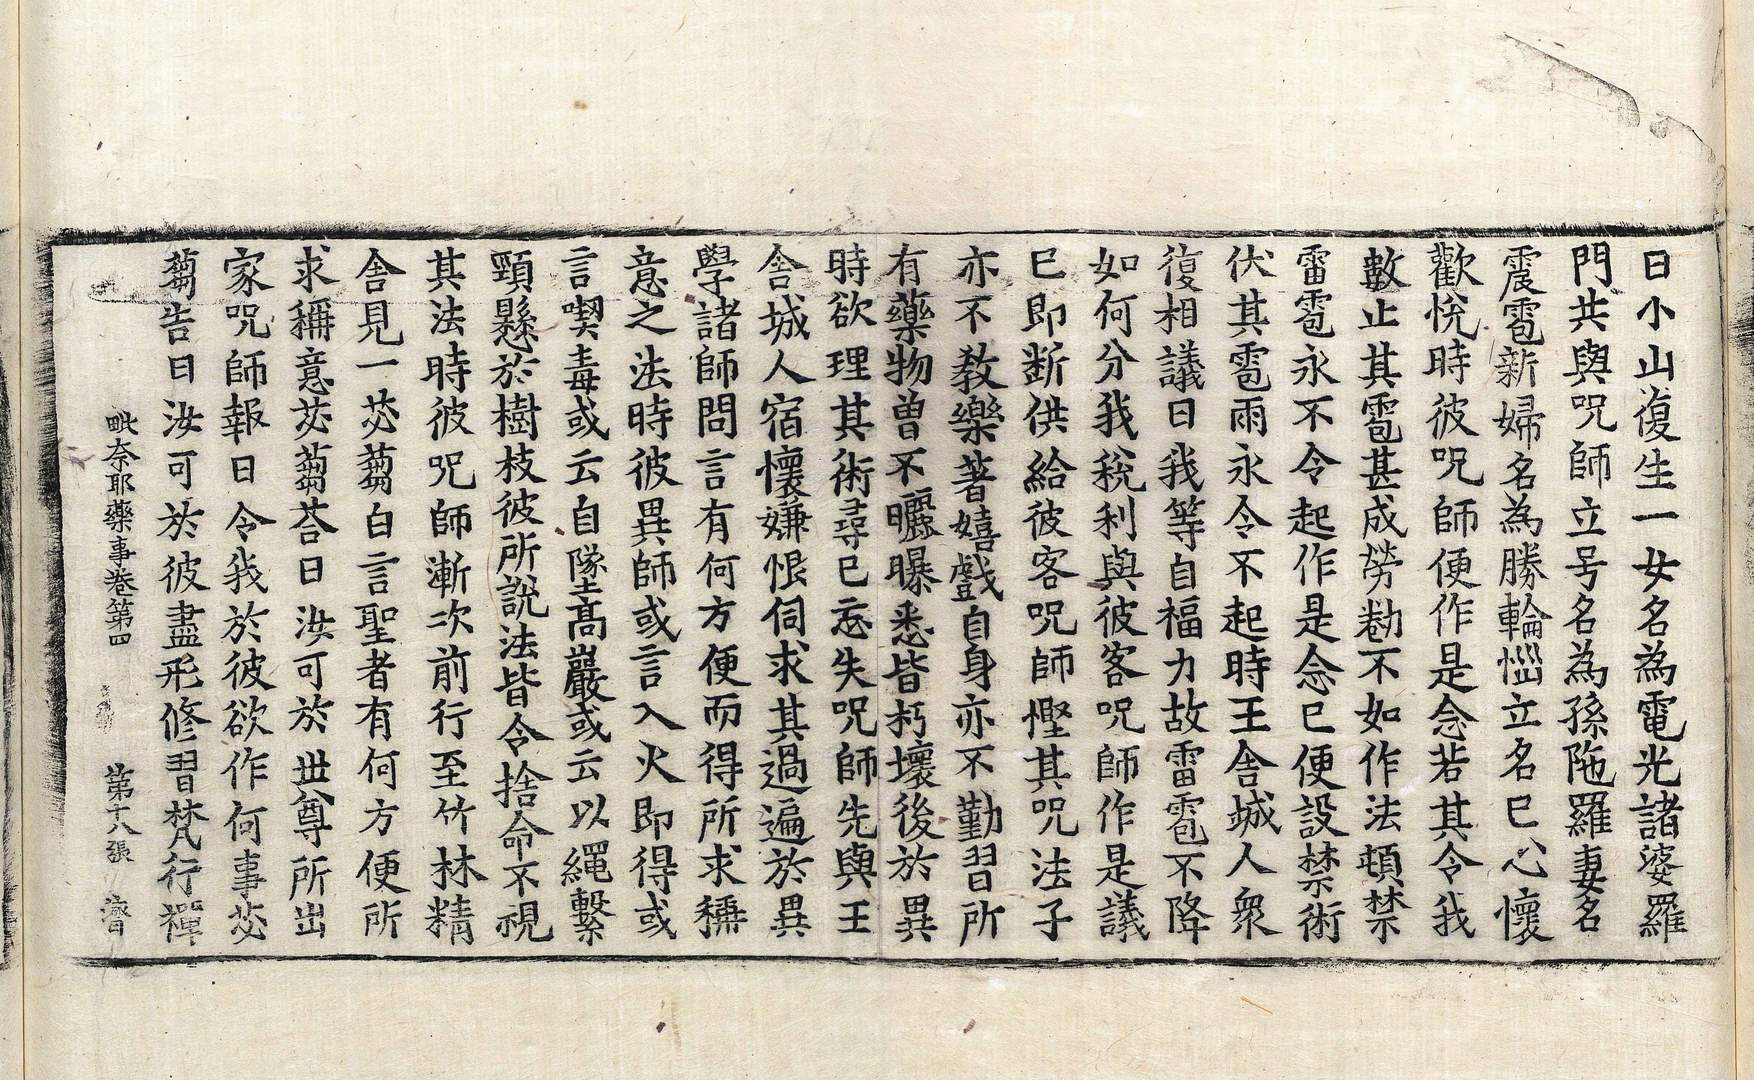 日小山復生一女名為電光諸婆羅
門共與呪師立号名為孫陁羅妻名
震雹新婦名為勝輪惱立名已心懷
歡悅時彼呪師便作是念若其令我
數止其雹甚成勞勌不如作法頓禁
雷雹永不令起作是念已便設禁術
伏其雹雨永令不起時王舍城人衆
復相議曰我等自福力故雷雹不降
如何分我稅利與彼客呪師作是議
已即断供給彼客呪師慳其呪法子
亦不教樂著嬉戲自身亦不勤習所
有藥物曾不曬曝悉皆朽壞後於異
時欲理其術尋已忘失呪師先與王
舍城人宿懷嫌恨伺求其過遍於異
學諸師問言有何方便而得所求稱
意之法時彼異師或言入火即得或
言喫毒或云自墜髙巖或云以繩繫
頸懸於樹枝彼所說法皆令捨命不視
其法時彼呪師漸次前行至竹林精
舍見一苾蒭白言聖者有何方便所
求稱意苾蒭荅曰汝可於世尊所出
家呪師報曰令我於彼欲作何事苾
蒭告曰汝可於彼盡形修習梵行禪
毗奈耶藥事卷第四 第十八張 濟